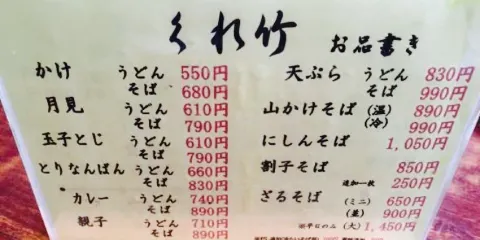 くれ竹 お品書き
かけ うどん 550円
そば 680円
月見 うどん 610円
そば 790円
玉子とじ うどん 610円
そば 790円
とりなんばん うどん 660円
そば 830円
カレー うどん 740円
そば 890円
親子 うどん 710円
そば 890円
天ぷら うどん 830円
そば 990円
山かけそば (温) 890円
(冷) 990円
にしんそば 1,050円
割子そば 850円
追加一枚 250円
ざるそば (ミニ) 650円
(並) 900円
※平日のみ (大) 1,450円